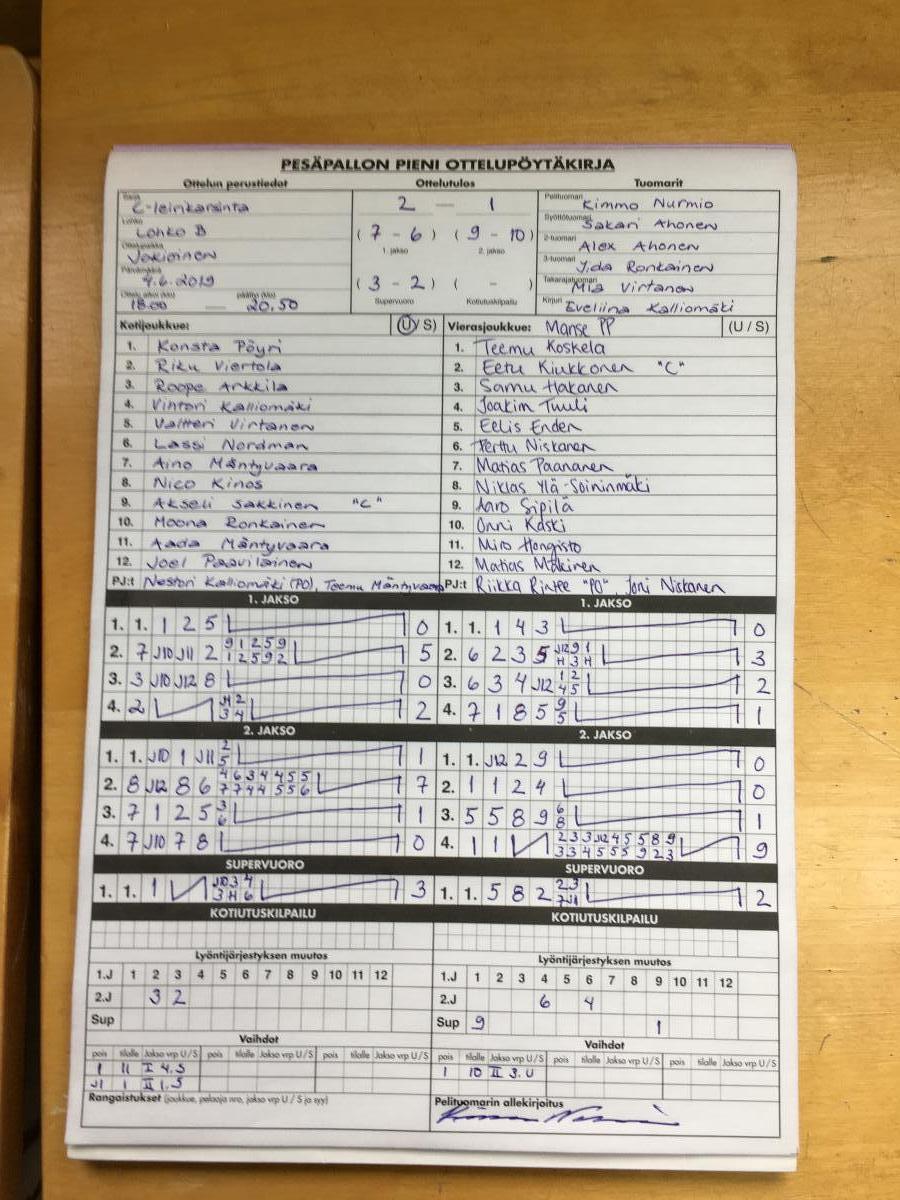 PESÄPALLON PIENI OTTELUPÖYTÄKIRJA
Ottelun perustiedot Ottelutulos Tuomarit
C-leirikarsinta 2 — 1 Pelituomari Kimmo Nurmio
Lohko Lohko B (7 - 6) (9 - 10) Syöttötuomari Sakari Ahonen
1. jakso 2. jakso 2-tuomari Alex Ahonen
Jokioinen 3-tuomari Iida Ronkainen
Päivämäärä 4.6.2019 (3 - 2) ( - ) Takarajatuomari Mia Virtanen
18.00 — 20.50 Supervuoro Kotiutuskilpailu Kirjuri Eveliina Kalliomäki
Kotijoukkue: (U/S) Vierasjoukkue: Manse PP (U / S)
1. Konsta Pöyri 1. Teemu Koskela
2. Riku Viertola 2. Eetu Kiukkonen "C"
3. Roope Arkkila 3. Samu Hakanen
4. Vihtori Kalliomäki 4. Joakim Tuuli
5. Valtteri Virtanen 5. Eelis Enden
6. Lassi Nordman 6. Perttu Niskanen
7. Aino Mäntyvaara 7. Matias Paananen
8. Nico Kinos 8. Niklas Ylä-Soininmäki
9. Akseli Sakkinen "C" 9. Aaro Sipilä
10. Moona Ronkainen 10. Onni Koski
11. Aada Mäntyvaara 11. Miro Hongisto
12. Joel Paavilainen 12. Matias Mäkinen
PJ:t Nestori Kalliomäki (PO), Teemu Mäntyvaara PJ:t Riikka Rintee "PO", Joni Niskanen
1. JAKSO 1. JAKSO
1. 1. 1 2 5 0 1. 1. 1 4 3 0
2. 7 J10 J11 2 9 1 2 5 9 5 2. 6 2 3 5 J12 9 1 3
1 2 5 9 2 H 3 H
3. 3 J10 J12 8 0 3. 6 3 4 J12 1 2 2
4 5
4. 2 J11 2 2 4. 7 1 8 5 9 1
3 4 5
2. JAKSO 2. JAKSO
1. 1. J10 1 J11 2 1 1. 1. J12 2 9 0
5
2. 8 J12 8 6 4 6 3 4 4 5 5 7 2. 1 1 2 4 0
7 7 4 4 5 5 6
3. 7 1 2 5 3 1 3. 5 5 8 9 6 1
6 8
4. 7 J10 7 8 0 4. 1 1 2 3 3 J12 4 5 5 8 9 9
3 3 4 5 5 5 9 2 3
SUPERVUORO SUPERVUORO
1. 1. 1 J10 3 4 3 1. 1. 5 8 2 2 3 2
3 H 6 7 J1
KOTIUTUSKILPAILU KOTIUTUSKILPAILU
Lyöntijärjestyksen muutos Lyöntijärjestyksen muutos
1.J 1 2 3 4 5 6 7 8 9 10 11 12 1.J 1 2 3 4 5 6 7 8 9 10 11 12
2.J 3 2 2.J 6 4
Sup Sup 9 1
Vaihdot Vaihdot
pois tilalle Jakso vrp U/S pois tilalle Jakso vrp U/S pois tilalle Jakso vrp U/S pois tilalle Jakso vrp U/S pois tilalle Jakso vrp U/S pois tilalle Jakso vrp U/S
1 11 I 4.S 1 10 II 3.U
J1 1 II 1.S
Rangaistukset (joukkue, pelaaja nro, jakso vrp U / S ja syy) Pelituomarin allekirjoitus